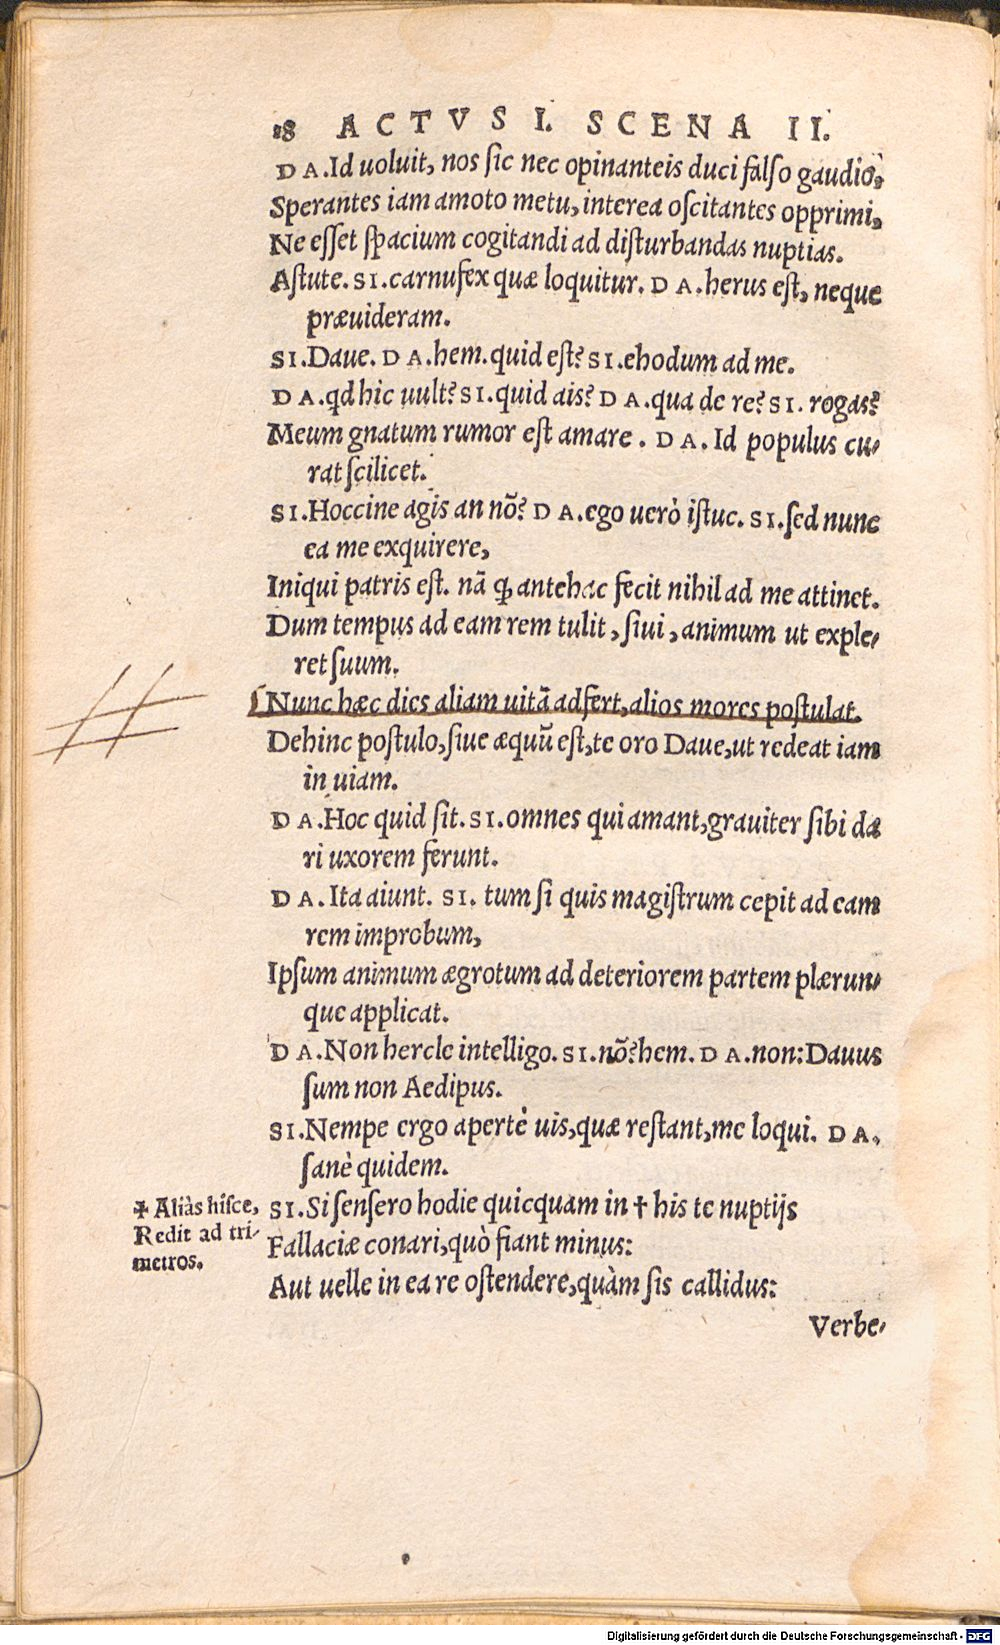 18 ACTVS I. SCENA II.
DA. Id uoluit, nos sic nec opinanteis duci falso gaudio,
Sperantes iam amoto metu, interea oscitantes opprimi,
Ne esset spacium cogitandi ad disturbandas nuptias.
Astute. SI. carnufex quæ loquitur. DA. herus est, neque
præuideram.
SI. Daue. DA. hem. quid est? SI. ehodum ad me.
DA. qd hic uult? SI. quid ais? DA. qua de re? SI. rogas?
Meum gnatum rumor est amare. DA. Id populus cu-
rat scilicet.
SI. Hoccine agis an nõ? DA. ego uerò istuc. SI. sed nunc
ea me exquirere,
Iniqui patris est. nã ꝙ antehac fecit nihil ad me attinet.
Dum tempus ad eam rem tulit, siui, animum ut exple-
ret suum.
Nunc hæc dies aliam uitã adfert, alios mores postulat.
Dehinc postulo, siue æquũ est, te oro Daue, ut redeat iam
in uiam.
DA. Hoc quid sit. SI. omnes qui amant, grauiter sibi da
ri uxorem ferunt.
DA. Ita aiunt. SI. tum si quis magistrum cepit ad eam
rem improbum,
Ipsum animum ægrotum ad deteriorem partem plærun-
que applicat.
DA. Non hercle intelligo. SI. nõ? hem. DA. non: Dauus
sum non Aedipus.
SI. Nempe ergo apertè uis, quæ restant, me loqui. DA.
sanè quidem.
SI. Si sensero hodie quicquam in † his te nuptijs
Fallaciæ conari, quò fiant minus:
Aut uelle in ea re ostendere, quàm sis callidus:
Verbe-
† Aliàs hisce,
Redit ad tri-
metros.
Digitalisierung gefördert durch die Deutsche Forschungsgemeinschaft - DFG